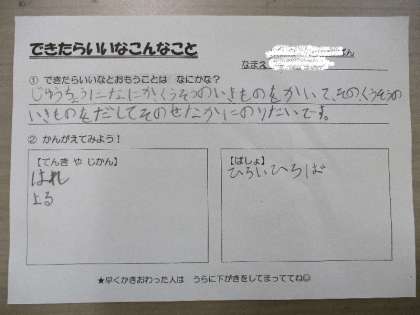 できたらいいなこんなこと
なまえ
① できたらいいなとおもうことは なにかな？
じゆうちょうになにかくうそうのいきものをかいて、そのくうそうの
いきものをだしてそのせなかにのりたいです。
② かんがえてみよう！
【てんき や じかん】
はれ
よる
【ばしょ】
ひろいひろば
★早くかきおわった人は うらに下がきをしてまっててね☺